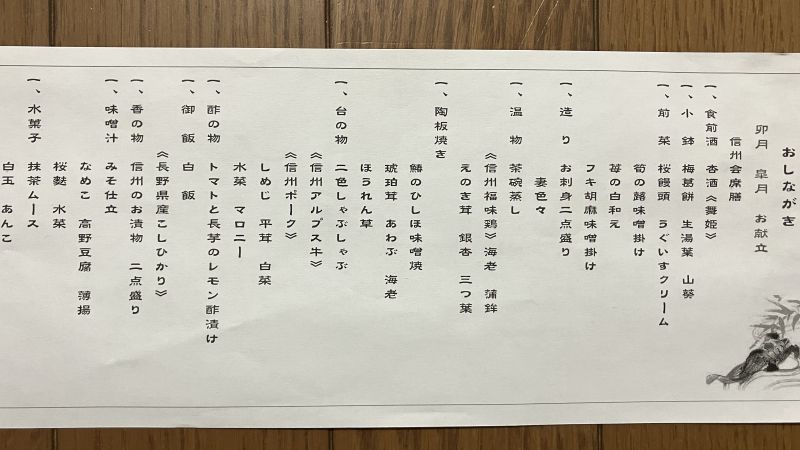 おしながき
卯月　皐月　お献立
信州会席膳
一、食前酒　杏酒《舞姫》
一、小　鉢　梅葛餅　生湯葉　山葵
一、前　菜　桜饅頭　うぐいすクリーム
筍の蕗味噌掛け
苺の白和え
フキ胡麻味噌掛け
一、造　り　お刺身二点盛り
妻色々
一、温　物　茶碗蒸し
《信州福味鶏》海老　蒲鉾
えのき茸　銀杏　三つ葉
一、陶板焼き
鰆のひしほ味噌焼
琥珀茸　あわび　海老
ほうれん草
一、台の物　二色しゃぶしゃぶ
《信州アルプス牛》
《信州ポーク》
しめじ　平茸　白菜
水菜　マロニー
一、酢の物　トマトと長芋のレモン酢漬け
一、御　飯　白　飯
《長野県産こしひかり》
一、香の物　信州のお漬物　二点盛り
一、味噌汁　みそ仕立
なめこ　高野豆腐　薄揚
桜麩　水菜
一、水菓子　抹茶ムース
白玉　あんこ